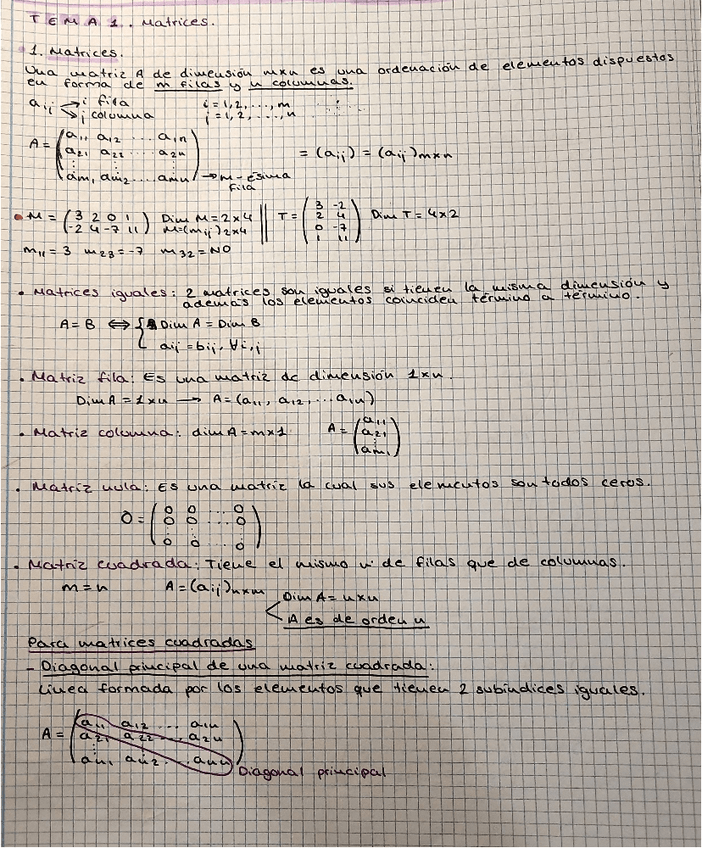 TEMA 1. Matrices.
1. Matrices.
Una matriz A de dimensión mxn es una ordenación de elementos dispuestos
en forma de m filas y n columnas.
aij → i fila    i = 1, 2, ..., m
→ j columna    j = 1, 2, ..., n
A = ( a11 a12 ... a1n
a21 a22 ... a2n    = (aij) = (aij)mxn
⋮
am1 am2 ... amn ) → m-ésima
fila
M = ( 3 2 0 1    Dim M = 2x4 || T = ( 3 -2
-2 4 -7 11 )    M = (mij)2x4    2 4    Dim T = 4x2
0 -7
1 11 )
m11 = 3  m23 = -7  m32 = NO
• Matrices iguales: 2 matrices son iguales si tienen la misma dimensión y
además los elementos coinciden término a término.
A = B ⇔ { Dim A = Dim B
aij = bij, ∀i,j
• Matriz fila: Es una matriz de dimensión 1xn.
Dim A = 1xn → A = (a11, a12, ... a1n)
• Matriz columna: dim A = mx1    A = ( a11
a21
⋮
am1 )
• Matriz nula: Es una matriz la cual sus elementos son todos ceros.
O = ( 0 0 ... 0
0 0 ... 0
⋮ ⋮ ⋮
0 0 ... 0 )
• Matriz cuadrada: Tiene el mismo nº de filas que de columnas.
m = n    A = (aij)nxm
Dim A = nxn
A es de orden n
Para matrices cuadradas
- Diagonal principal de una matriz cuadrada:
Línea formada por los elementos que tienen 2 subíndices iguales.
A = ( a11 a12 ... a1n
a21 a22 ... a2n
⋮
an1 an2 ... ann )
Diagonal principal